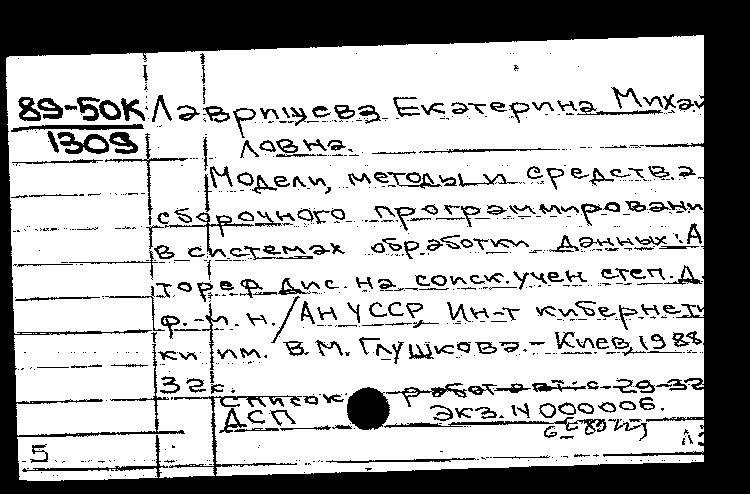 89-50К
1309
Лаврищева Екатерина Михай
ловна.
Модели, методы и средства
сборочного программировани
в системах обработки данных: А
тореф дис. на соиск. учен степ. д.
ф.-м. н. / АН УССР, Ин-т кибернети
ки им. В. М. Глушкова. - Киев, 1988
32 с.
Список работ авт: с. 29-32
ДСП Экз. N 000006.
5